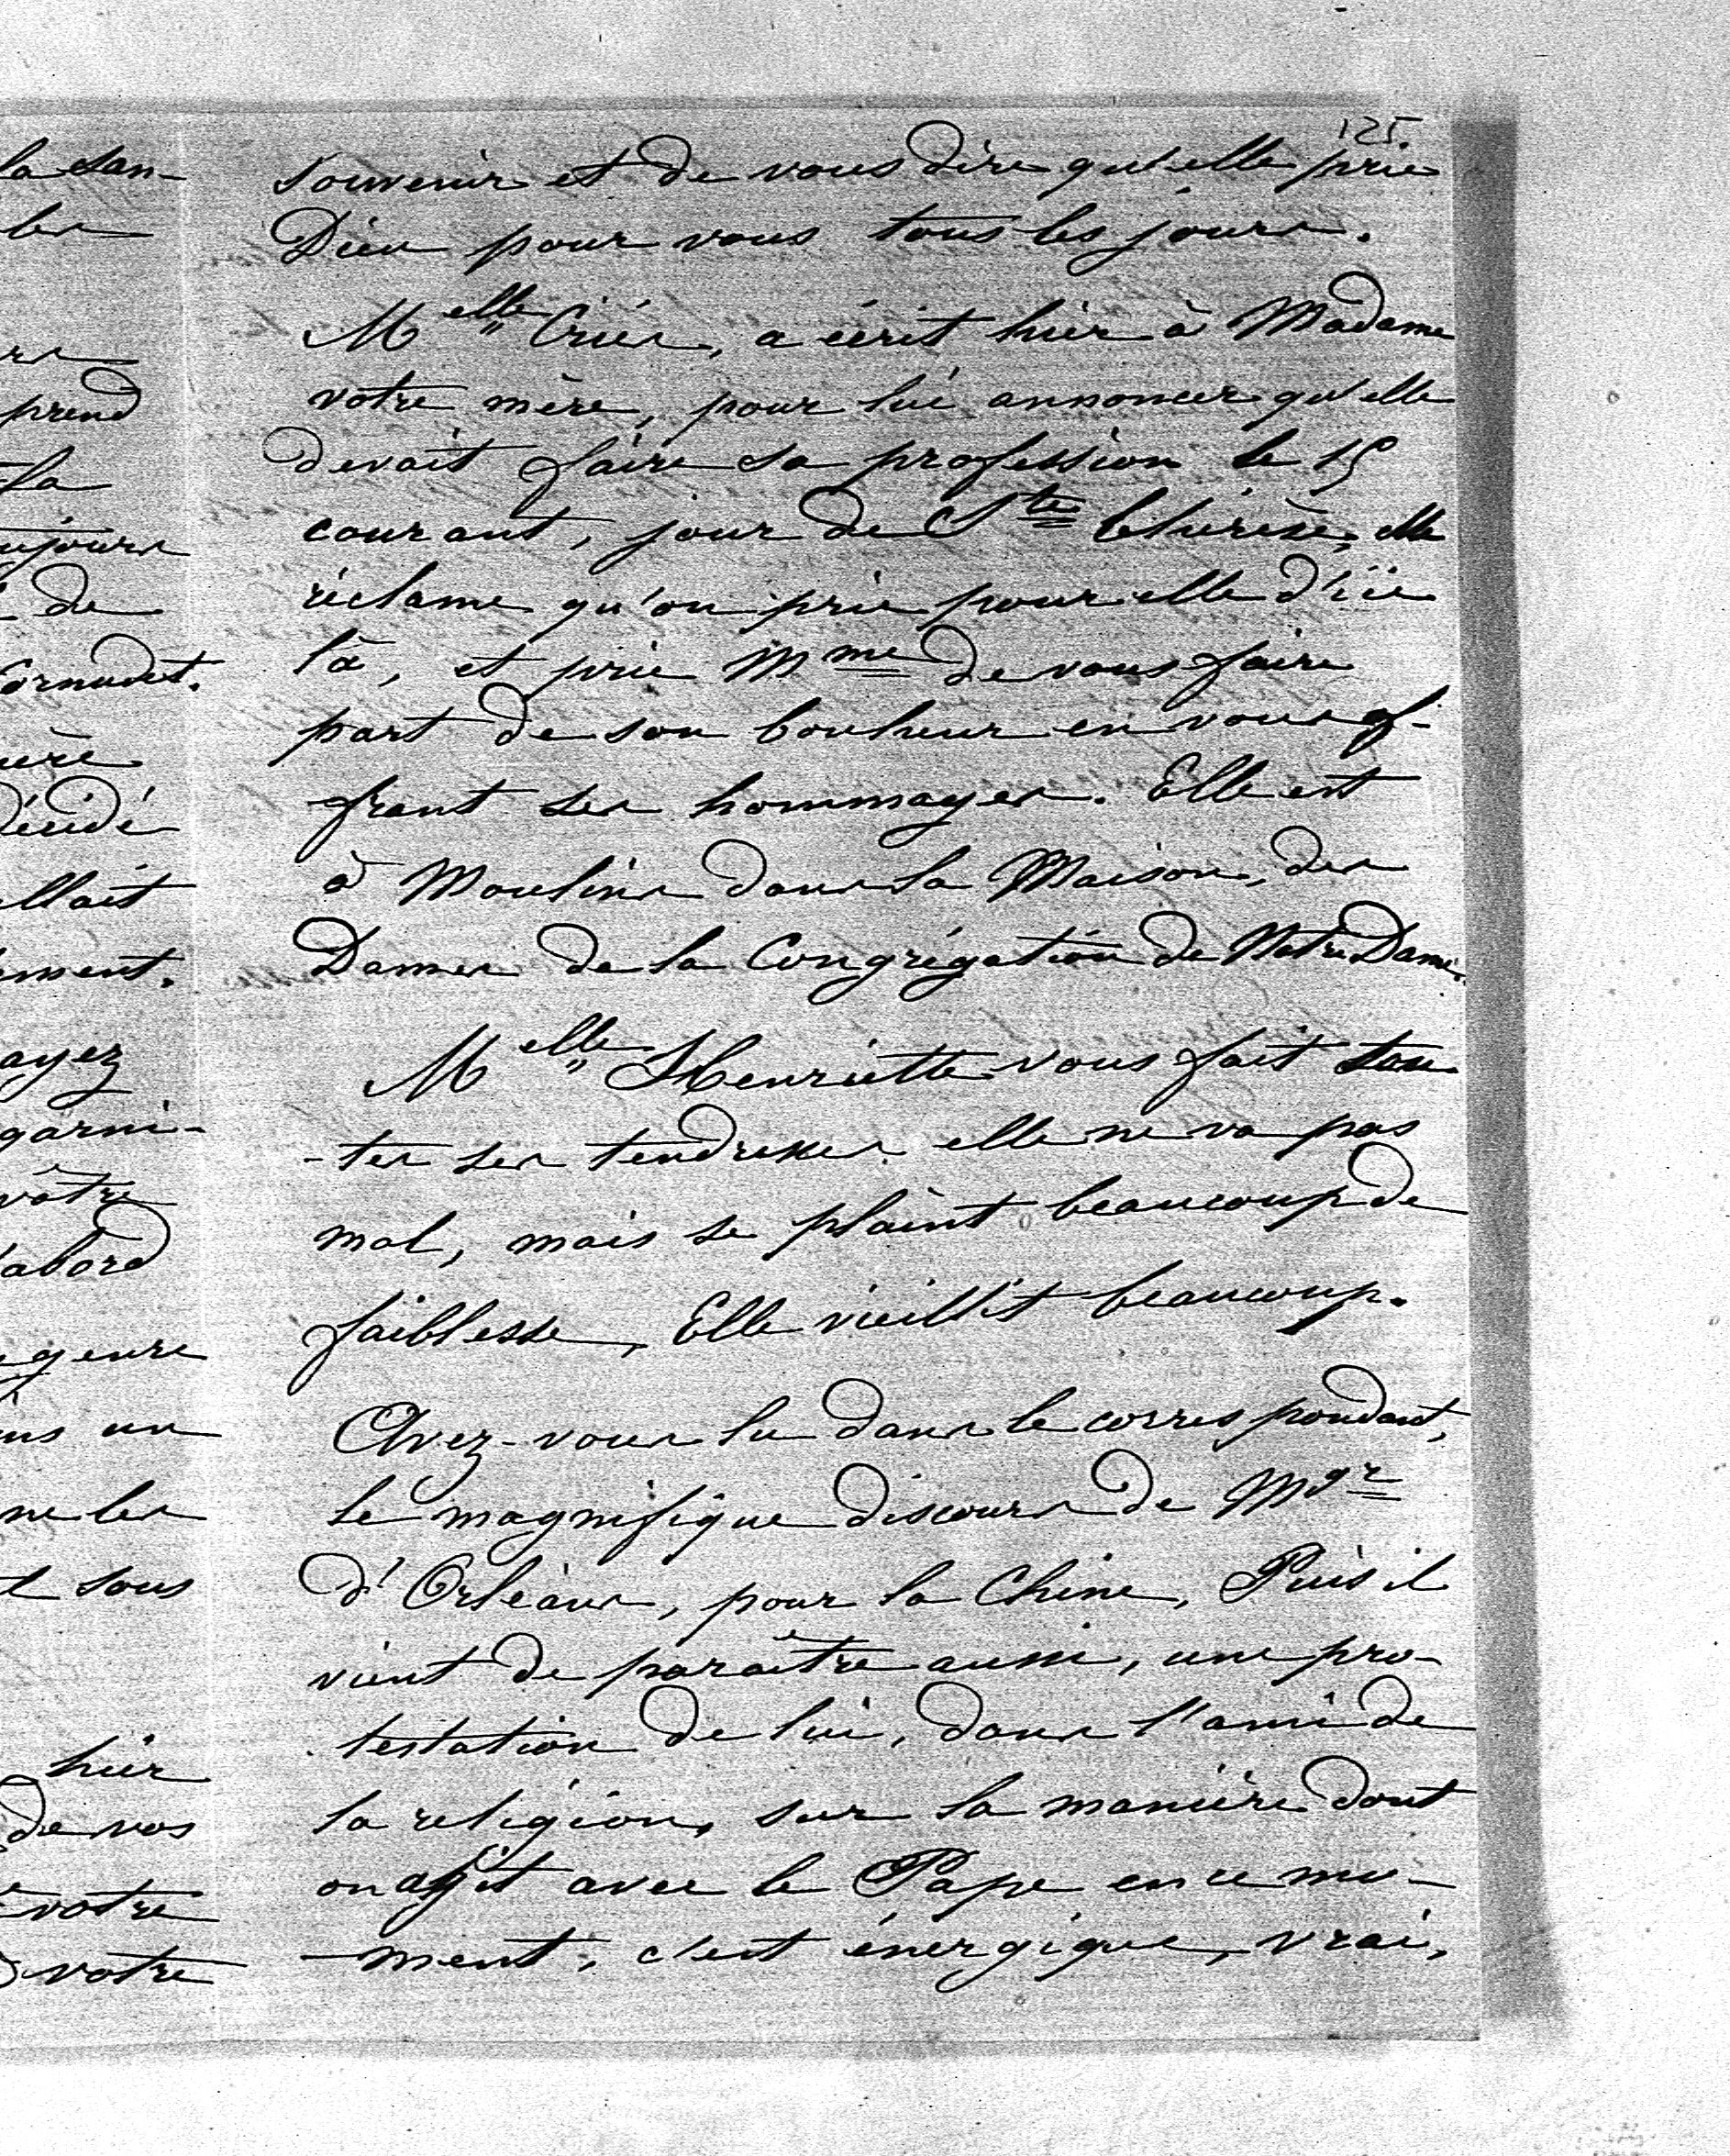 la san-
les
re
prend
la
ujours
de
Cornudet.
ière
décidé
allait
ement.
ayez
garni-
vôtre
d'abord
genre
ns un
ne les
sous
hier
de vos
votre
votre
125.
souvenir et de vous dire qu'elle prie
Dieu pour vous tous les jours.
Melle Criés, a écrit hier à Madame
votre mère, pour lui annoncer qu'elle
devait faire sa profession le 15
courant, jour de Ste Thérèse, elle
réclame qu'on prie pour elle d'ici
là, et prie Mme de vous faire
part de son bonheur en vous of-
frant ses hommages. Elle est
à Moulins dans la Maison, des
Dames de la Congrégation de Notre Dame.
Melle Henriette vous fait tou-
-tes ses tendresses. elle ne va pas
mal, mais se plaint beaucoup de
faiblesse, Elle vieillit beaucoup.
Avez-vous lu dans le correspondant,
le magnifique discours de Mgr
d'Orléans, pour la Chine, Puis il
vient de paraître aussi, une pro-
testation de lui, dans l'ami de
la religion, sur la manière dont
on agit avec le Pape en ce mo-
-ment, c'est énergique, vrai,